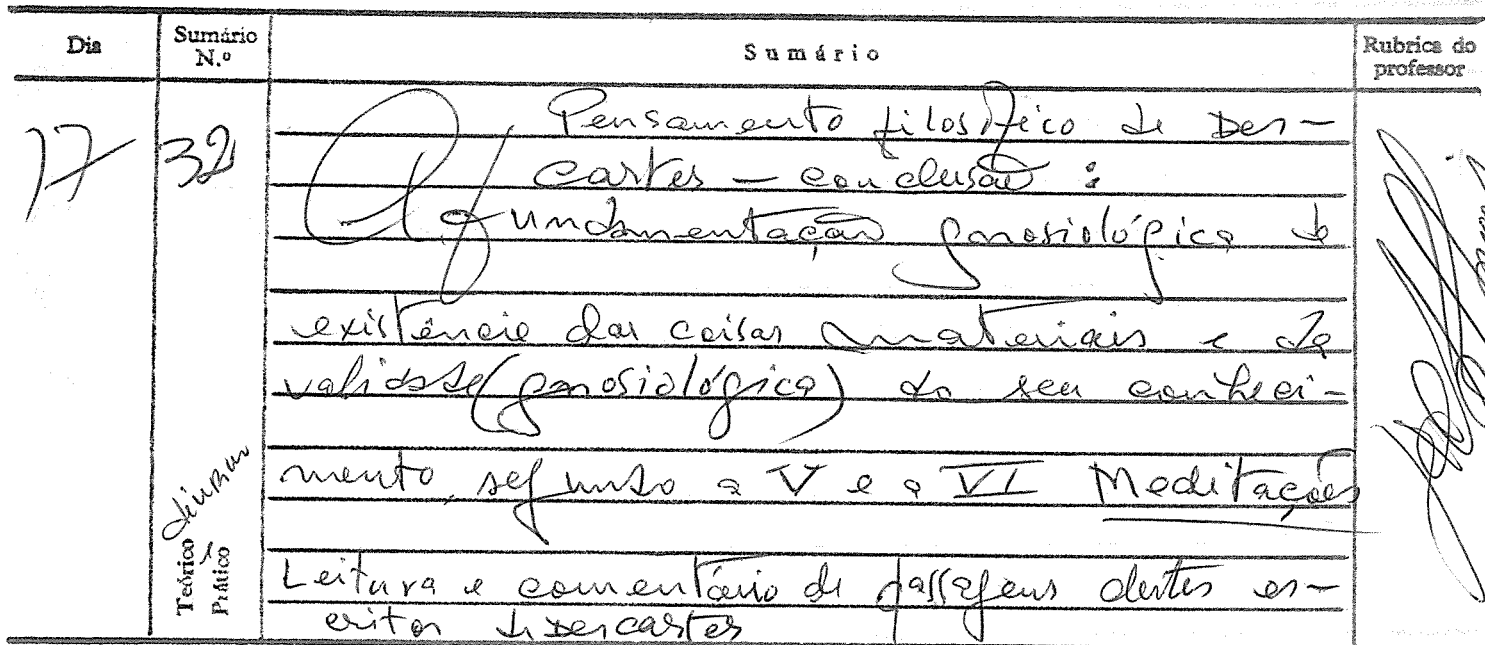 Dia
Sumário N.º
Sumário
Rubrica do professor
17
32
Pensamento filosófico de Des-
cartes — conclusão :
A fundamentação gnosiológica da
existência das coisas materiais e da
validade (gnosiológica) do seu conheci-
mento, segundo a V e a VI Meditações
Leitura e comentário de passagens destes es-
critos de Descartes
Teórico
Prático
diurno